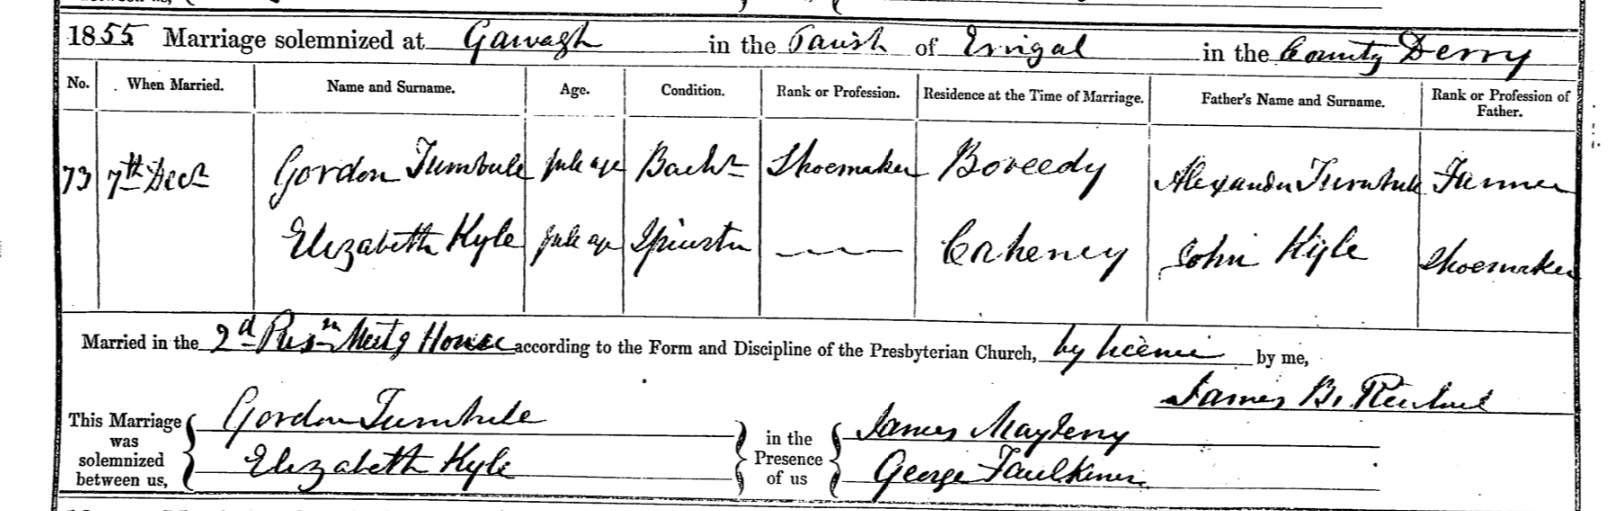 1855 Marriage solemnized at Garvagh in the Parish of Errigal in the County Derry
No. When Married. Name and Surname. Age. Condition. Rank or Profession. Residence at the Time of Marriage. Father's Name and Surname. Rank or Profession of Father.
73 7th Decr Gordon Turnbull full age Bachr Shoemaker Boveedy Alexander Turnbull Farmer
Elizabeth Kyle full age Spinster Caheney John Kyle Shoemaker
Married in the 2d Presn Meetg House according to the Form and Discipline of the Presbyterian Church, by licence by me,
James B.
This Marriage was solemnized between us, Gordon Turnbull in the Presence of us James
Elizabeth Kyle George Faulkiner